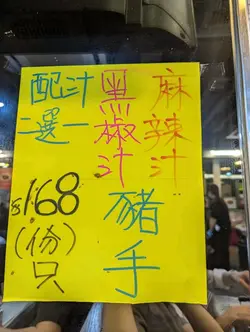 麻辣汁
黑椒汁
豬手
配汁
二選一
$168
(份)
只